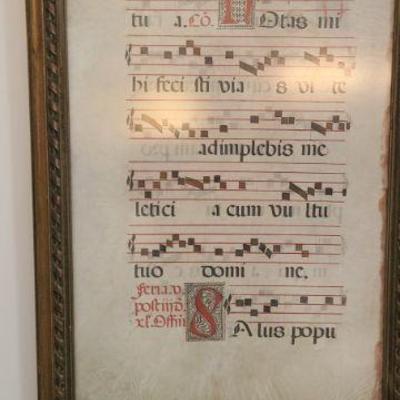 tu a. Cō. NOtas mi
hi feci sti vias vi te
adimplebis me
letici a cum vul tu
tuo domi ne.
feria.v.
post iiij.d.
xl. Offiū
SAlus popu